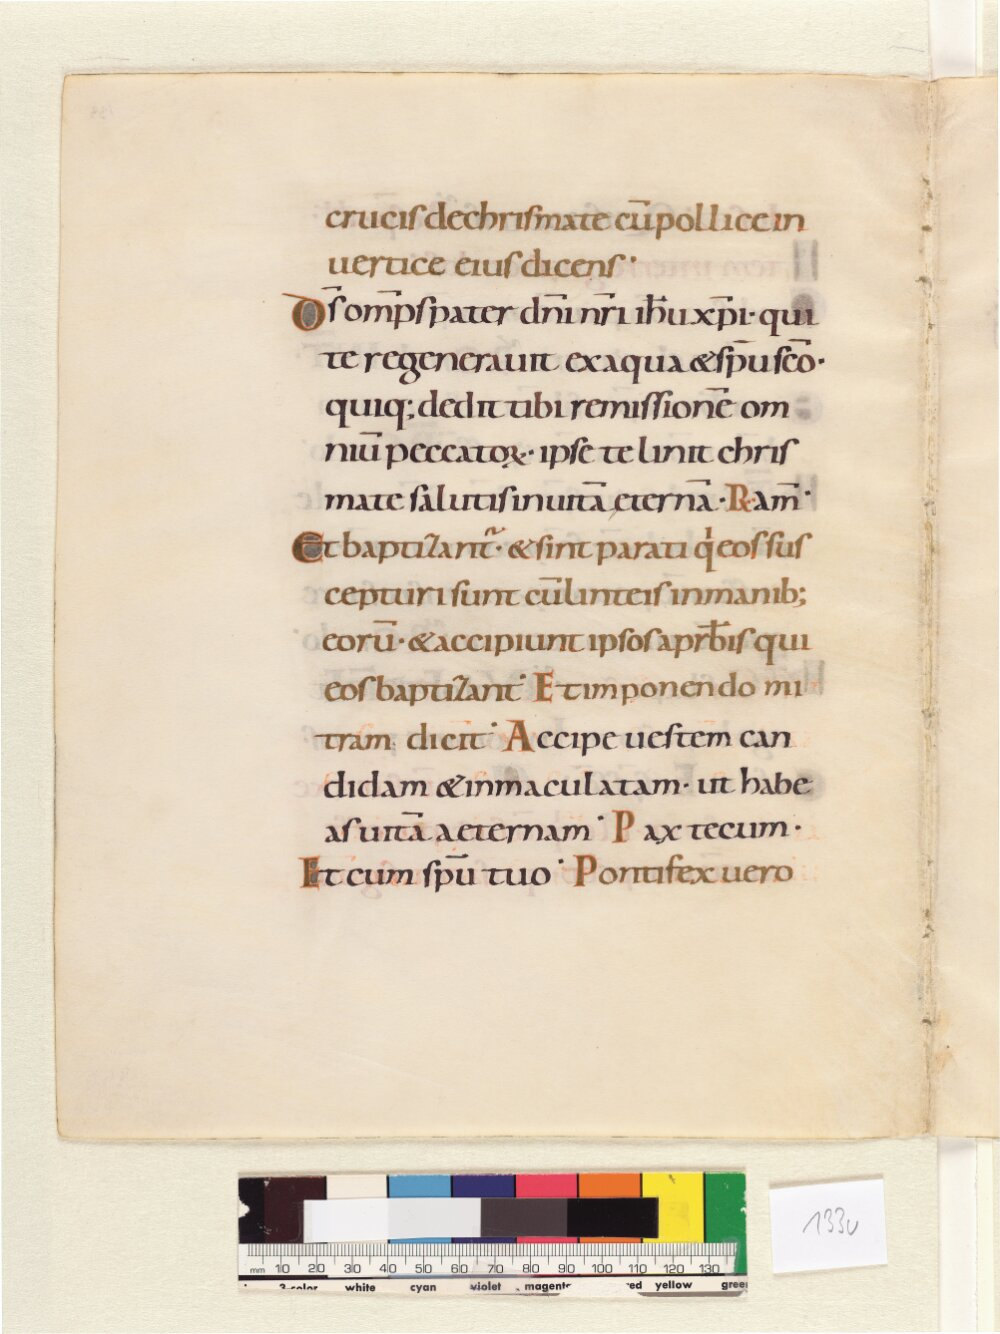 crucis de chrismate cū pollice in
uertice eius dicens·
D̅s om̅ps pater dn̅i nr̅i ih̅u xp̅i· qui
te regenerauit ex aqua & sp̅u sc̅o·
quiq; dedit tibi remissionē om
niū peccatoꝝ· ipse te linit chris
mate salutis in uitā ęternā· R̷ am̅·
Et baptizant̃· & sint parati q̍ eos sus
cepturi sunt cū linteis in manib;
eorū· & accipiunt ipsos a prb̅is qui
eos baptizant· Et imponendo mi
tram dicit· Accipe uestem can
didam & inmaculatam· ut habe
as uitā aeternam· Pax tecum·
Et cum sp̅u tuo· Pontifex uero
mm 10 20 30 40 50 60 70 80 90 100 110 120 130
3-color white cyan violet magenta red yellow green
133v